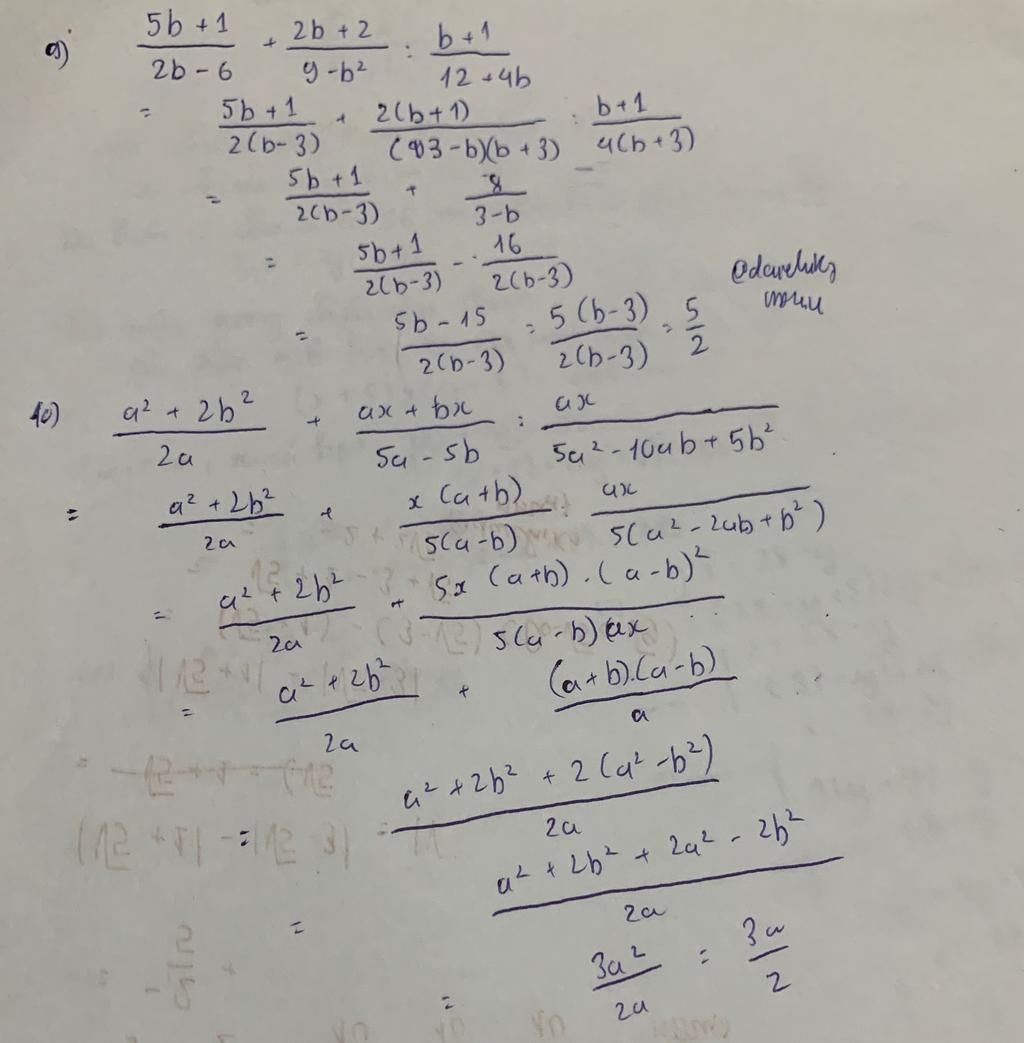 9) (5b+1)/(2b-6) + (2b+2)/(9-b²) : (b+1)/(12+4b)
= (5b+1)/(2(b-3)) + 2(b+1)/((3-b)(b+3)) : (b+1)/(4(b+3))
= (5b+1)/(2(b-3)) + 8/(3-b)
= (5b+1)/(2(b-3)) - 16/(2(b-3))
= (5b-15)/(2(b-3)) = 5(b-3)/(2(b-3)) = 5/2
10) (a²+2b²)/(2a) + (ax+bx)/(5a-5b) : ax/(5a²-10ab+5b²)
= (a²+2b²)/(2a) + x(a+b)/(5(a-b)) : ax/(5(a²-2ab+b²))
= (a²+2b²)/(2a) + 5x(a+b).(a-b)²/(5(a-b)ax)
= (a²+2b²)/(2a) + (a+b).(a-b)/a
= (a²+2b²+2(a²-b²))/(2a)
= (a²+2b²+2a²-2b²)/(2a)
= 3a²/(2a) = 3a/2